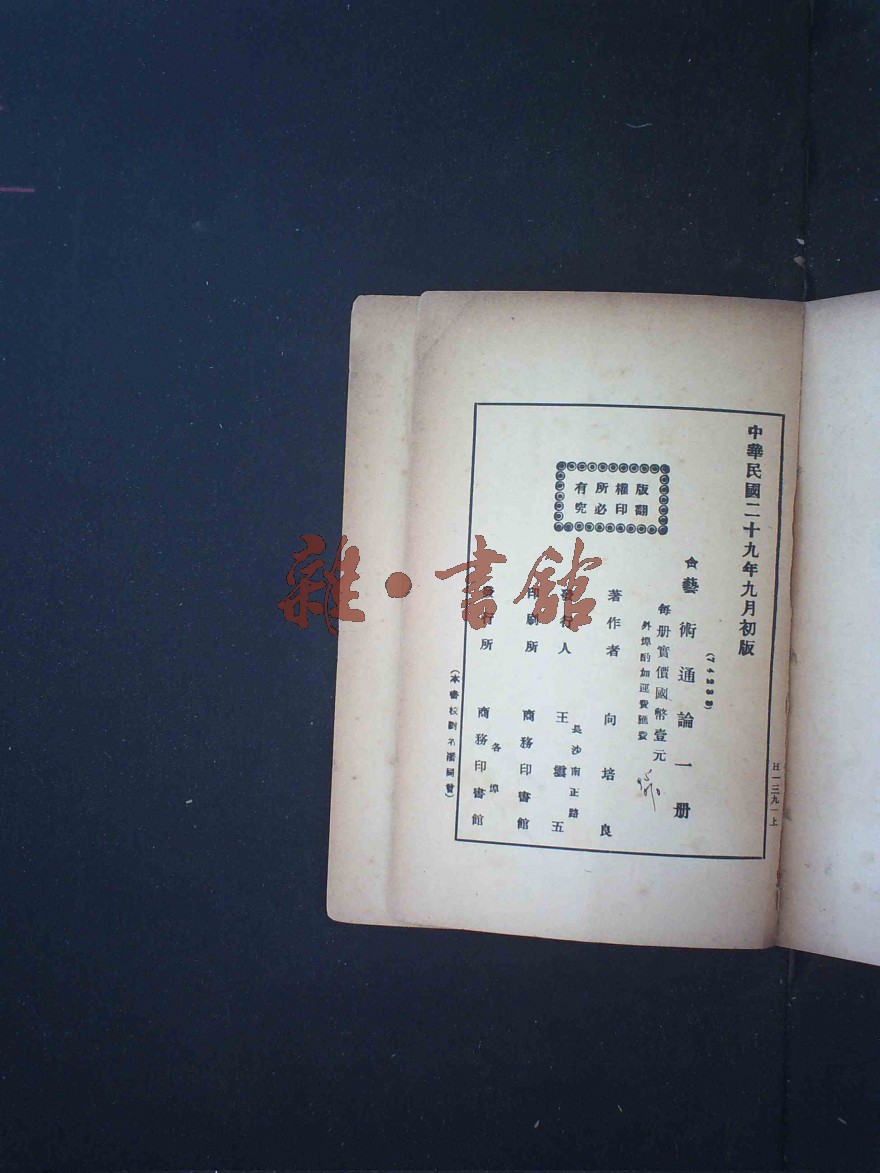 中華民國二十九年九月初版
版權所有
翻印必究
(74233)
藝術通論一册
每册實價國幣壹元
外埠酌加運費匯費
著作者 向培良
發行人 王雲五
長沙南正路
印刷所 商務印書館
發行所 商務印書館
各埠
H一三九一上
雜·書館